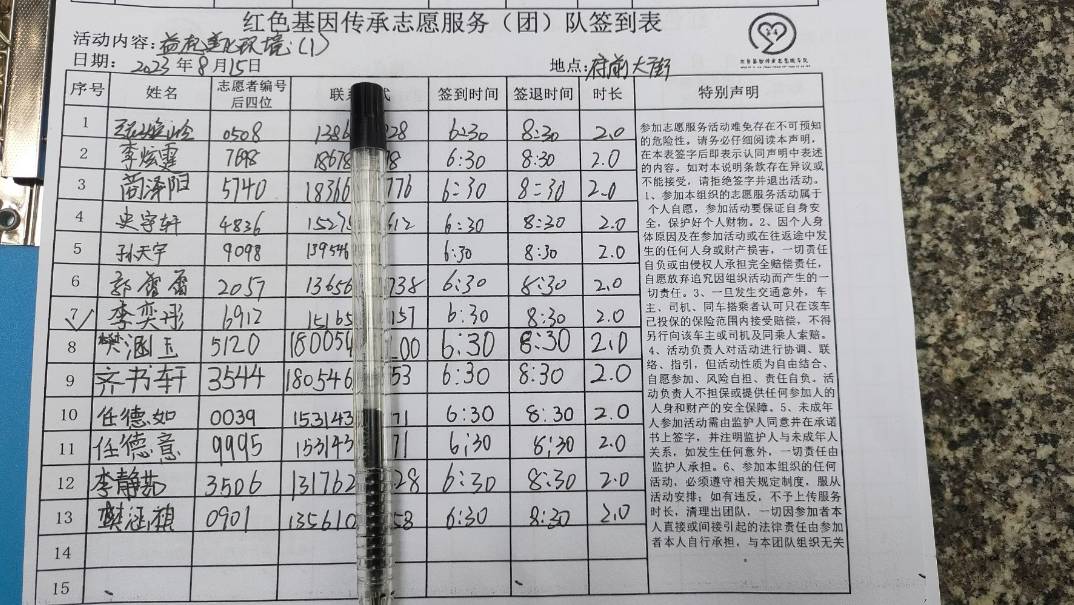 红色基因传承志愿服务（团）队签到表
活动内容：益起美化环境（1）
日期：2023年8月15日 地点：府前大街
序号 姓名 志愿者编号后四位 联 式 签到时间 签退时间 时长 特别声明
1 0508 1386 28 6:30 8:30 2.0
2 李炫霏 7698 18678 78 6:30 8:30 2.0
3 商泽阳 5740 18366 776 6:30 8:30 2.0
4 史宇轩 4836 1527 612 6:30 8:30 2.0
5 孙天宇 9098 139546 6:30 8:30 2.0
6 2057 13656 738 6:30 8:30 2.0
7 李奕彤 6912 15165 157 6:30 8:30 2.0
8 樊涵玉 5120 180054 00 6:30 8:30 2.0
9 齐书轩 3544 180546 53 6:30 8:30 2.0
10 任德如 0039 153143 71 6:30 8:30 2.0
11 任德意 9995 153143 71 6:30 8:30 2.0
12 李静茹 3506 131762 28 6:30 8:30 2.0
13 0901 135610 58 6:30 8:30 2.0
14
15
参加志愿服务活动难免存在不可预知
的危险性，请务必仔细阅读本声明，
在本表签字后即表示认同声明中表述
的内容。如对本说明条款存在异议或
不能接受，请拒绝签字并退出活动。
1、参加本组织的志愿服务活动属于
个人自愿，参加活动要保证自身安
全，保护好个人财物。2、因个人身
体原因及在参加活动或在往返途中发
生的任何人身或财产损害，一切责任
自负或由侵权人承担完全赔偿责任，
自愿放弃追究因组织活动而产生的一
切责任。3、一旦发生交通意外，车
主、司机、同车搭乘者认可只在该车
已投保的保险范围内接受赔偿，不得
另行向该车主或司机及同乘人索赔。
4、活动负责人对活动进行协调、联
络、指引，但活动性质为自由结合、
自愿参加、风险自担、责任自负。活
动负责人不担保或提供任何参加人的
人身和财产的安全保障。5、未成年
人参加活动需由监护人同意并在承诺
书上签字，并注明监护人与未成年人
关系，如发生任何意外，一切责任由
监护人承担。6、参加本组织的任何
活动，必须遵守相关规定制度，服从
活动安排；如有违反，不予上传服务
时长，清理出团队，一切因参加者本
人直接或间接引起的法律责任由参加
者本人自行承担，与本团队组织无关